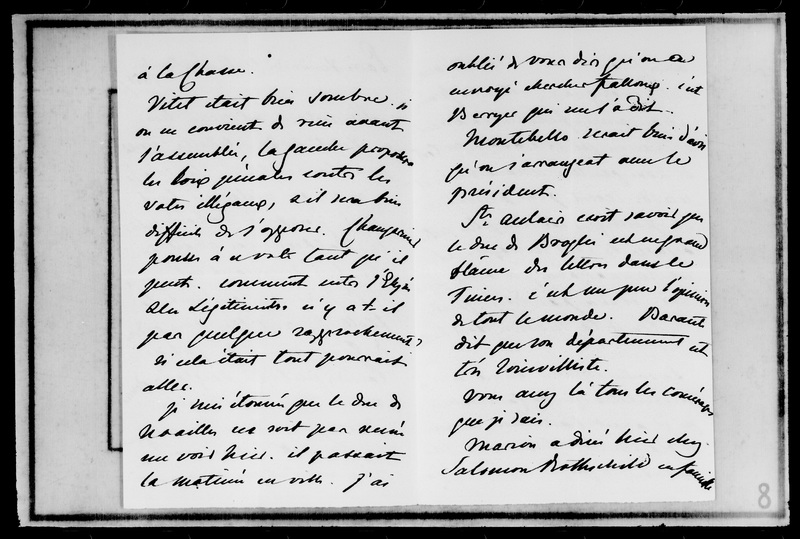 à la Chasse.
Vitet était bien sombre. si
on ne convient de rien avant
l'assemblée, la gauche proposera
les loix pénales contre les
votes illégaux, & il sera bien
difficile de s'opposer. Changarnier
pousse à
tant qu'il
peut. comment entre l'Elysée
& les Légitimistes n'y a-t-il
pas quelque rapprochement?
si cela était tout pourrait
aller.
je suis étonnée que le duc de
Noailles ne soit pas venu
me voir hier. il passait
la matinée en ville. J'ai
oublié de vous dire qu'on a
envoyé chercher Falloux. c'est
Berryer qui me l'a dit.
Montebello serait bien d'avis
qu'on s'arrangeat avec le
président.
Ste Aulaire croit savoir que
le duc de Broglie est
blâme des lettres dans le
Times. c'est un peu l'opinion
de tout le monde. Barante
dit que son département est
très Joinvilliste.
Vous avez là tous les commérages
que je sais.
Marion a diné hier chez
Salomon Rothschild en famille
8